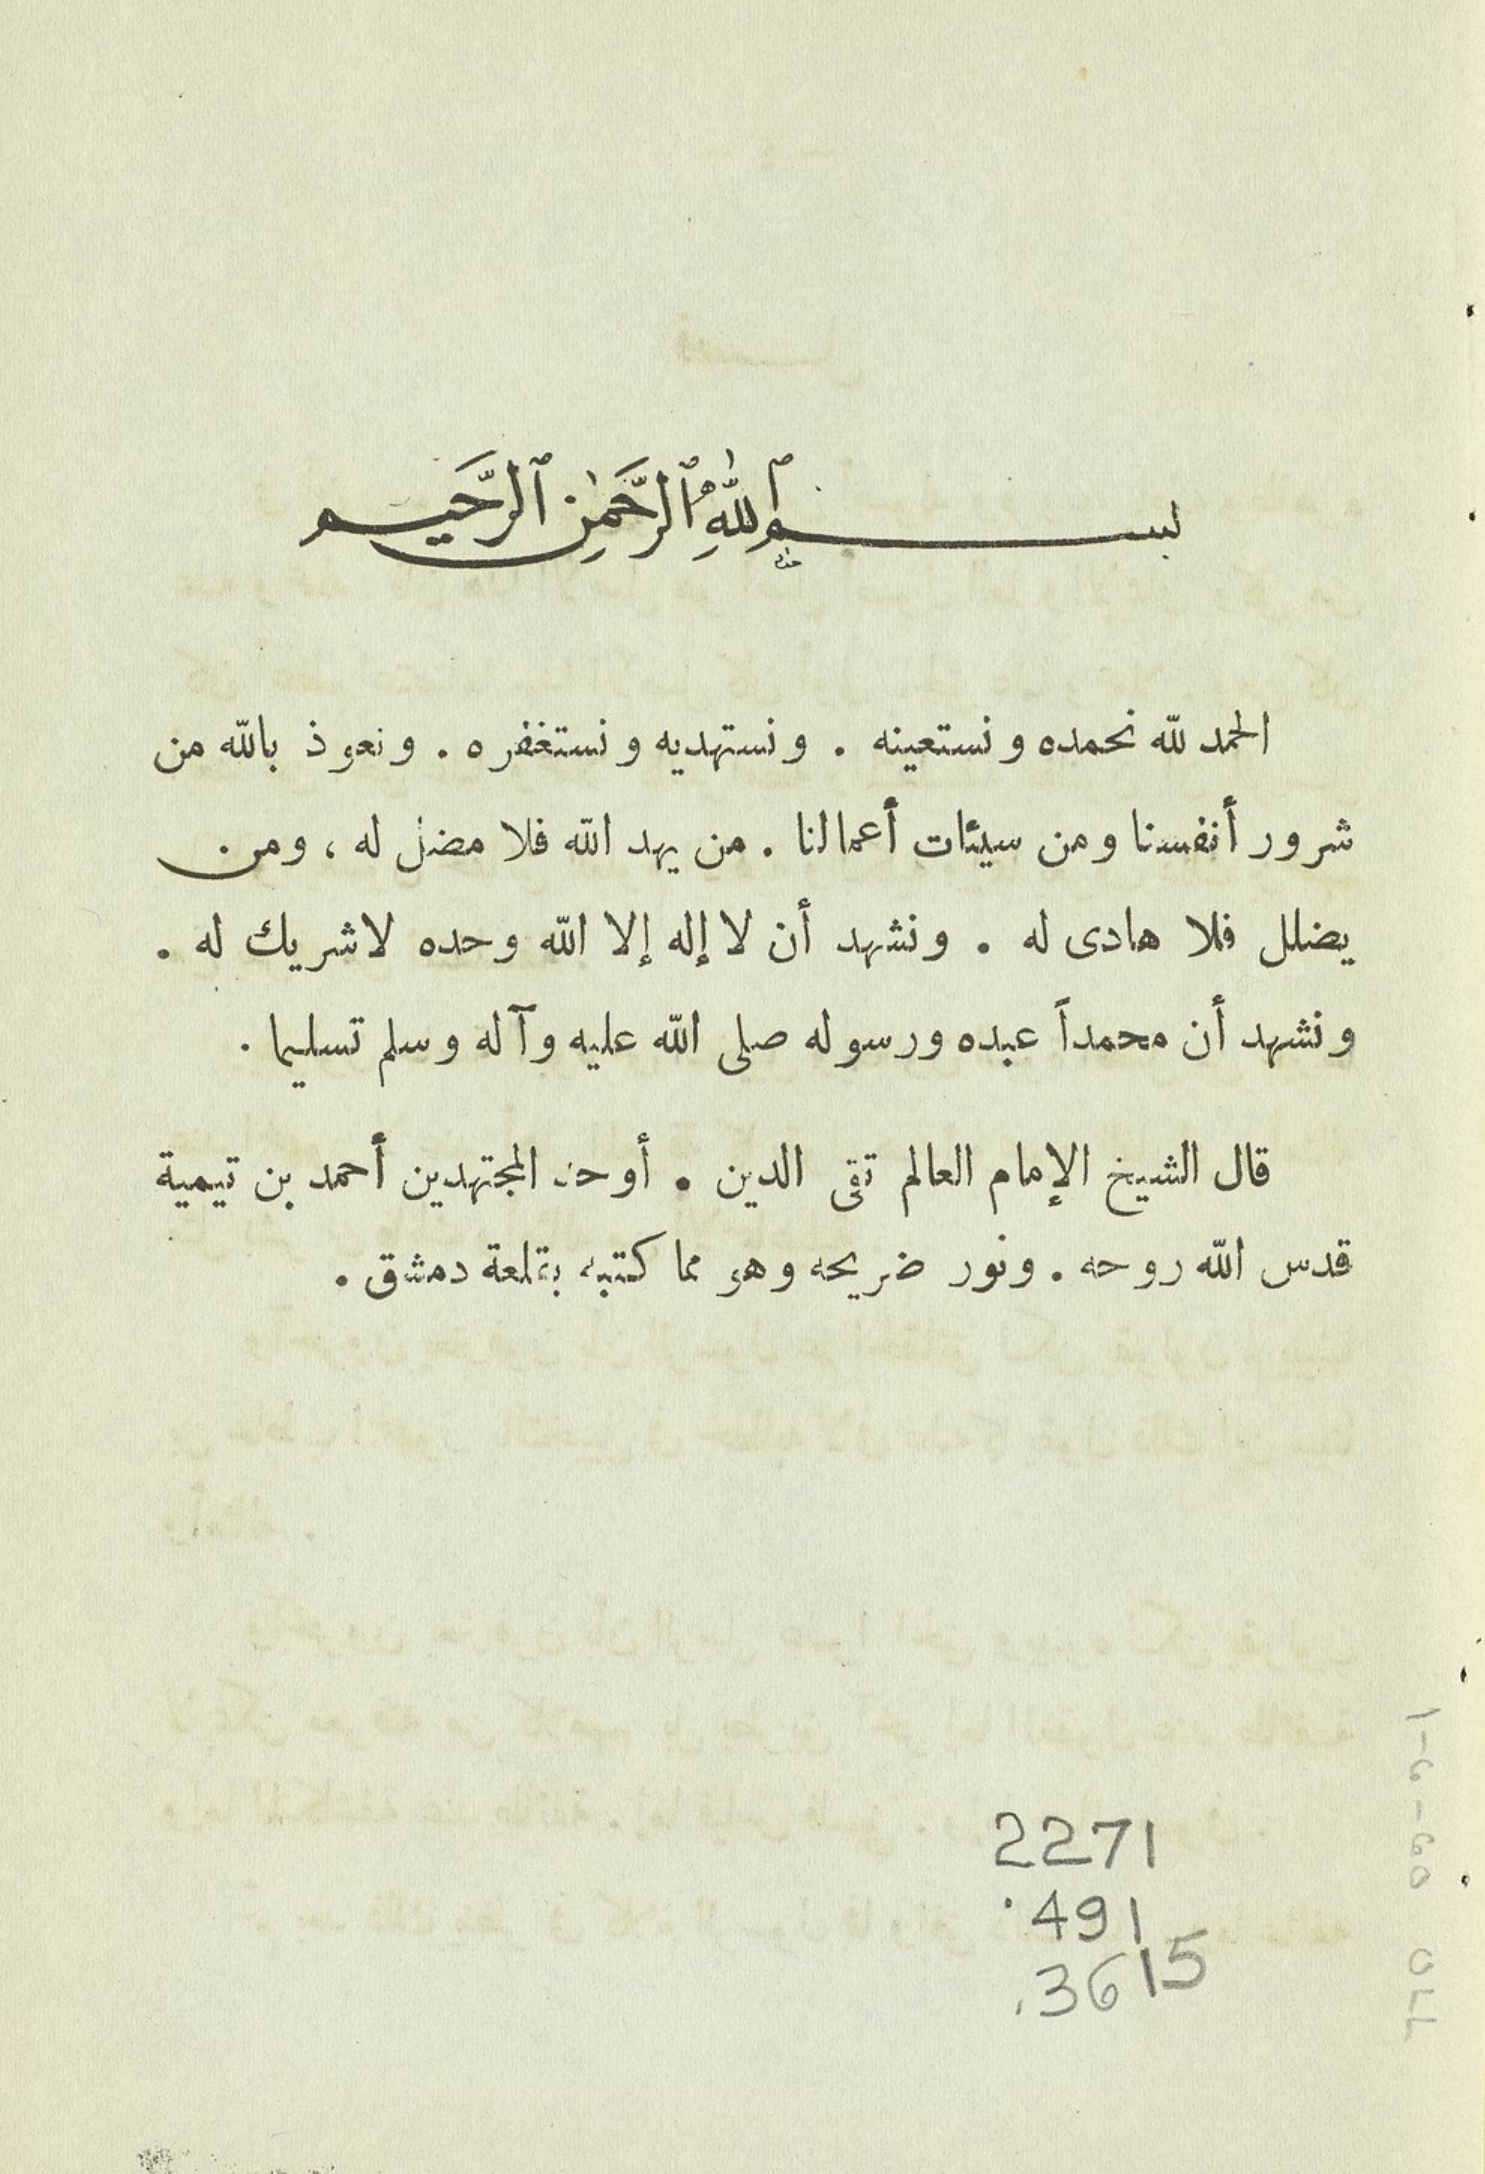 بسم ٱللّٰهِ ٱلرَّحمٰنِ ٱلرَّحيم
الحمد لله نحمده ونستعينه . ونستهديه ونستغفره . ونعوذ بالله من
شرور أنفسنا ومن سيئات أعمالنا . من يهد الله فلا مضل له ، ومن
يضلل فلا هادى له . ونشهد أن لا إله إلا الله وحده لاشريك له .
ونشهد أن محمداً عبده ورسوله صلى الله عليه وآله وسلم تسليما .
قال الشيخ الإمام العالم تقى الدين . أوحد المجتهدين أحمد بن تيمية
قدس الله روحه . ونور ضريحه وهو مما كتبه بقلعة دمشق .
2271
.491
.3615